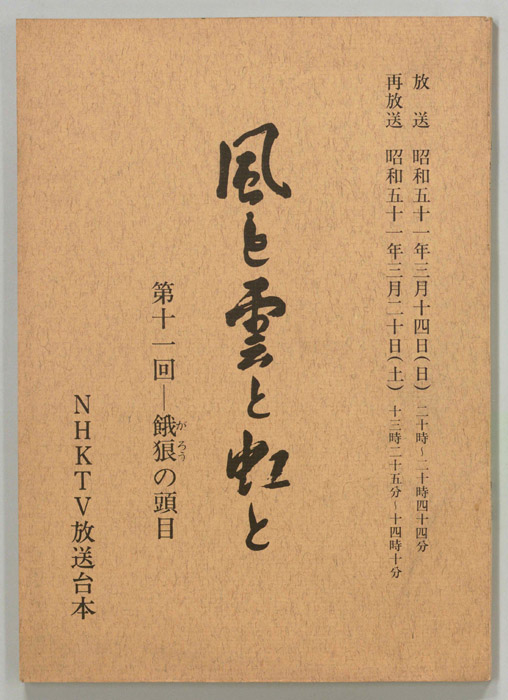 放　送　昭和五十一年三月十四日(日)　二十時～二十時四十四分
再放送　昭和五十一年三月二十日(土)　十三時二十五分～十四時十分
風と雲と虹と
第十一回―餓狼の頭目
がろう
NHKTV放送台本